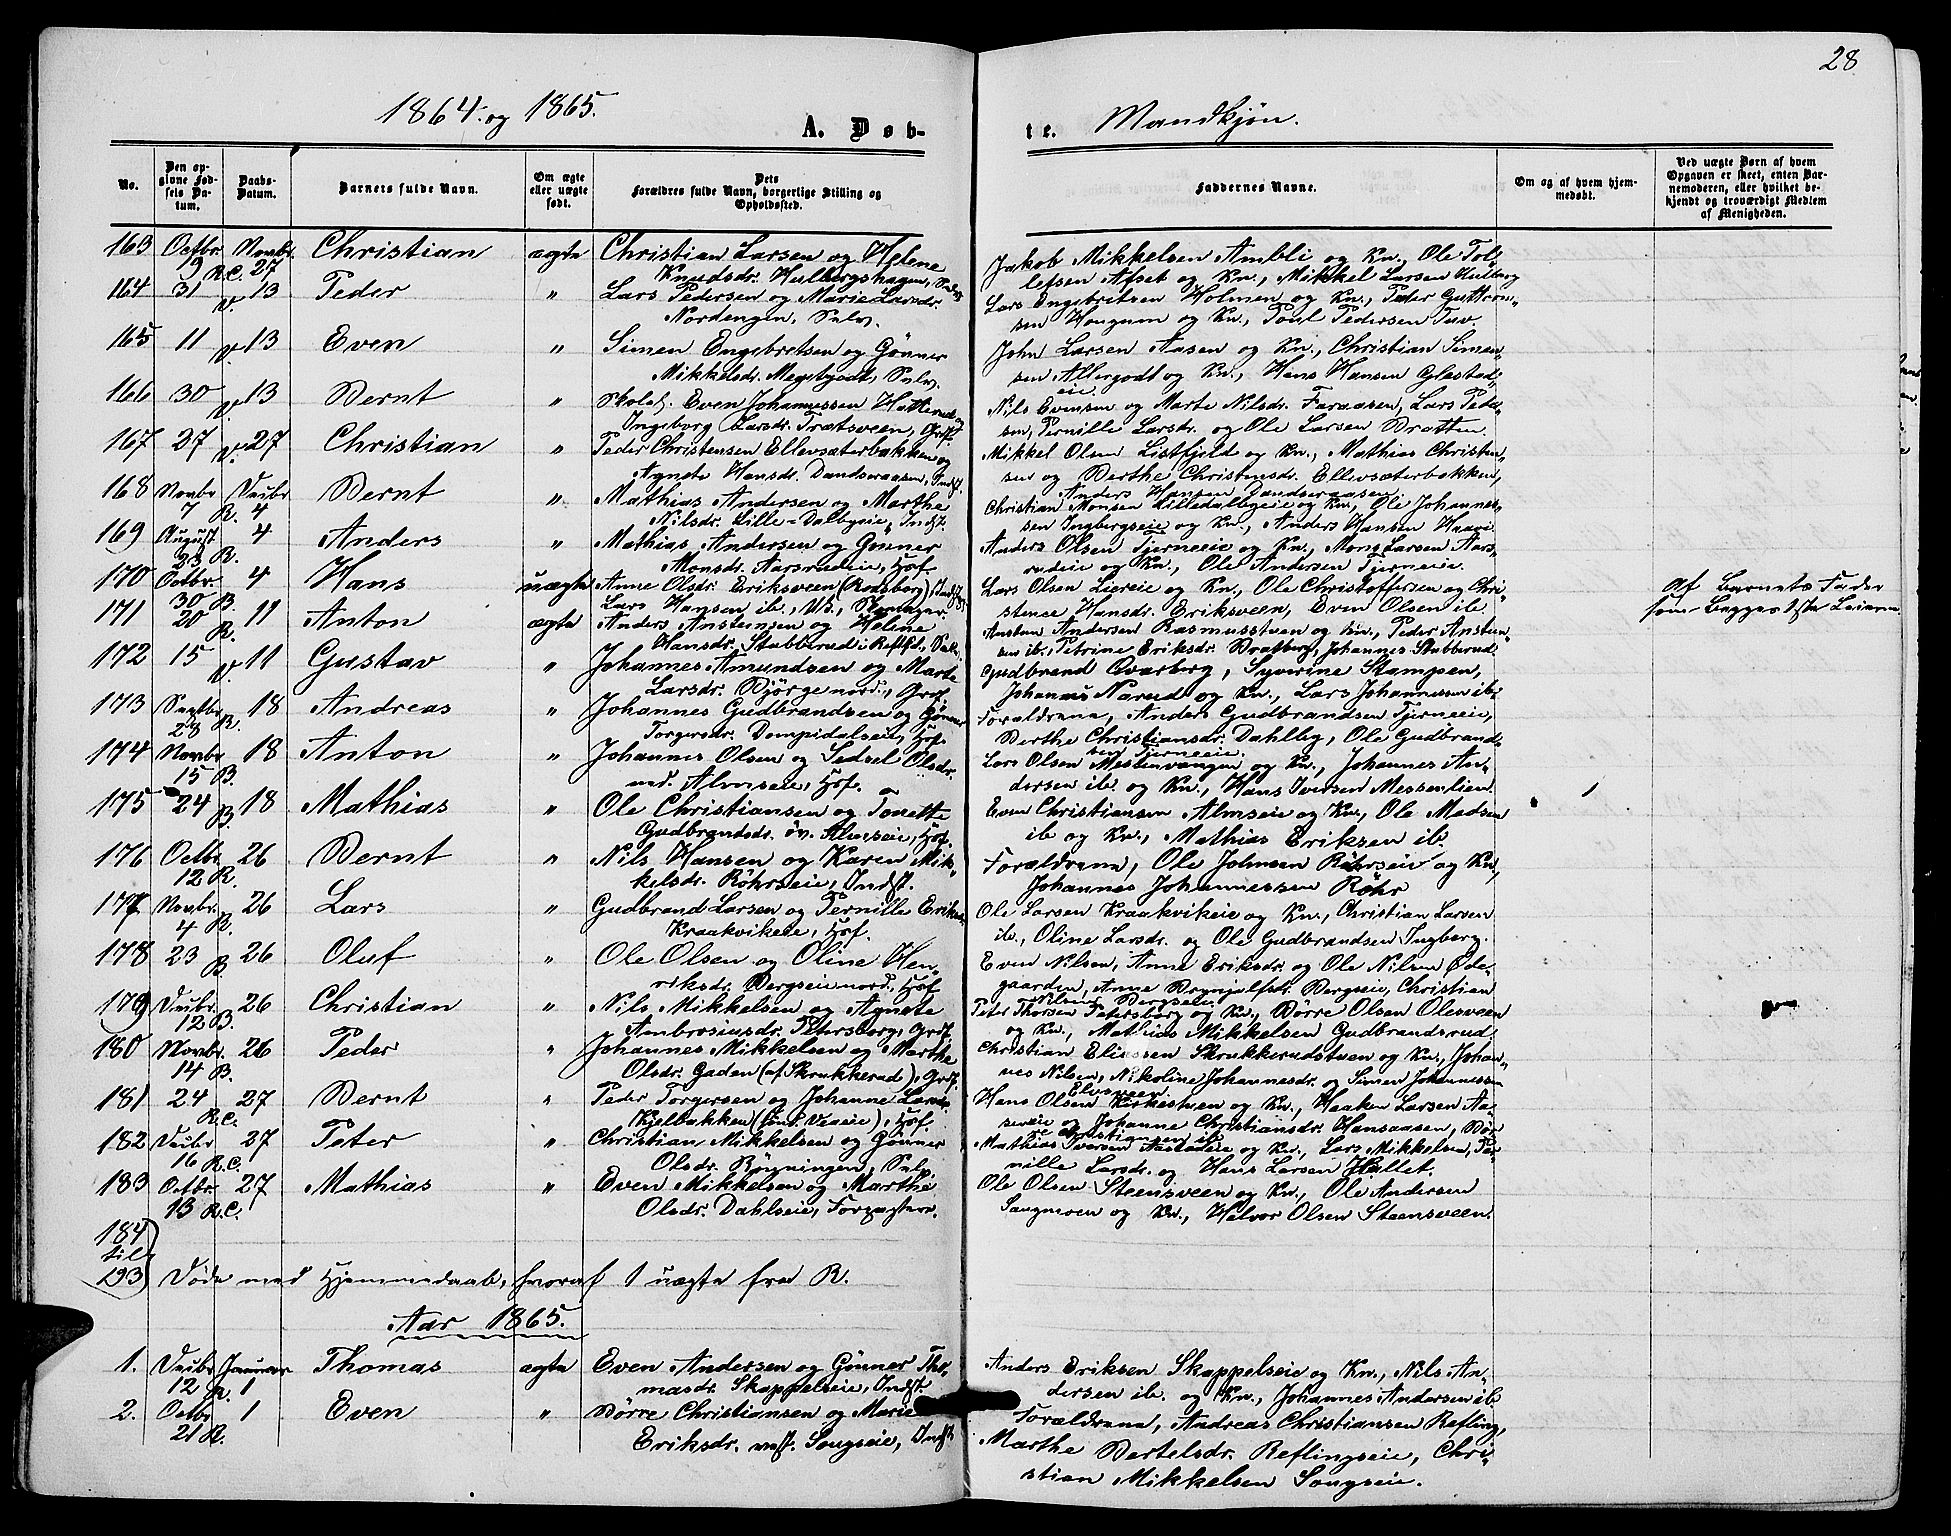 28
1864. og 1865.
A. Døb-
te.
Mandkjøn.
No.
Den op-
givne Fød-
sels Da-
tum.
Daabs-
Datum.
Barnets fulde Navn.
Om ægte
eller uægte
født.
Dets
Forældres fulde Navn, borgerlige Stilling og
Opholdssted.
Faddernes Navne.
Om og af hvem hjem-
medøbt.
Ved uægte Børn af hvem
Opgaven er skeet, enten Bar-
nemoderen, eller hvilket be-
kjendt og troværdigt Medlem
af Menigheden.
163 Octbr. Novbr. Christian ægte Christian Larsen og Helene
9 R.C. 27 Knudsdr. Hulbergshagen,
Jakob Mikkelsen Ambli og Kn., Ole Tol-
lefsen Afset og Kn., Mikkel Larsen Hulberg
164 31 V. 13 Peder " Lars Pedersen og Marie Larsdr.
Nordengen,
Lars Engebretsen Holmen og Kn., Peder Guttorm-
sen Hougnm og Kn., Poul Pedersen
165 11 V. 13 Even " Simen Engebretsen og Gønner
Mikkelsdr.
John Larsen Aasen og Kn., Christian Simen-
sen og Kn., Hans Hansen Glæstad-
eie.
166 30 V. 13 Bernt " Skolel. Even Johannessen
Ingeborg Larsdr. Trætsveen,
Nils Evensen og Marte Nilsdr. Faraasen, Lars Peder-
sen, Pernille Larsdr. og Ole Larsen Bratten
167 27 V. 27 Christian " Peder Christensen Ellevsæterbakken og
Agnete Hansdr. Dundseraasen, Indst.
Mikkel Olsen Listfjeld og Kn., Mathias Christen-
sen og Berthe Christensdr. Ellevsæterbakken,
Anders Hansen Dundseraasen
168 Novbr. Decbr. Bernt " Mathias Andersen og Marthe
7 R. 4 Nilsdr. Lille-Dalbyeie, Indst.
Christian Monsen Lilledalbyeie og Kn., Ole Johannes-
sen Ingbergseie og Kn., Anders Hansen
169 August 4 Anders " Mathias Andersen og Gønner
23 R. Monsdr. Aarsrudeie, Hof.
Anders Olsen Tjerneeie og Kn., Mons Larsen Aars-
rudeie og Kn., Ole Andersen Tjerneeie.
170 Octbr. 4 Hans uægte Anne Olsdr. Eriksveen (Rodsberg),
30 B. Lars Hansen ib.,
Lars Olsen Liereie og Kn., Ole Christoffersen og Chri-
stence Hansdr. Eriksveen, Even Olsen ib.
Af Barnets Fader
som begges 1ste Leierm.
171 20 R. 11 Anton ægte Anders Anstensen og Helene
Hansdr. Stubberud i
Ansten Andersen Rasmusstuen og Kn., Peder Ansten-
sen ib., Petrine Eriksdr. Bratberg, Johannes Stubberud
172 15 V. 11 Gustav " Johannes Amundsen og Marte
Larsdr. Bjørge nord.,
Gudbrand Overberg, Syverine Stampen,
Johannes Narud og Kn., Lars Johannessen ib.
173 Septbr. 18 Andreas " Johannes Gudbrandsen og Gønner
28 R. Torgersdr. Dompidalseie, Hof.
Forældrene, Anders Gudbrandsen Tjerneeie,
Berthe Christiansdr. Dahlby, Ole Gudbrand-
sen Tjerneeie.
174 Novbr. 18 Anton " Johannes Olsen og Sedsel Olsdr.
15 B. ned. Almseie, Hof.
Lars Olsen Mestenvangen og Kn., Johannes An-
dersen ib. og Kn., Hans Iversen Messenlien.
175 24 B. 18 Mathias " Ole Christiansen og Tonette
Gudbrandsdr. øv. Almseie, Hof.
Even Christiansen Almseie og Kn., Ole Madsen
ib og Kn., Mathias Eriksen ib.
176 Octbr. 26 Bernt " Nils Hansen og Karen Mik-
12 R. kelsdr. Röhrseie, Indst.
Forældrene, Ole Johnsen Röhrseie og Kn,
Johannes Johannessen Röhr
177 Novbr. 26 Lars " Gudbrand Larsen og Pernille Eriksdr.
4 R. Kraakvikeie, Hof.
Ole Larsen Kraakvikeie og Kn., Christian Larsen
ib., Oline Larsdr. og Ole Gudbrandsen Ingberg.
178 23 B 26 Oluf " Ole Olsen og Oline Hen-
riksdr. Bergseie nord., Hof
Even Nilsen, Anne Eriksdr. og Ole Nilsen Øde-
gaarden, Anne Brynjulfsdr. Bergseie, Christian
Nilsen Bergseie.
179 Decbr. 26 Christian " Nils Mikkelsen og Agnete
12 B. Ambrosiusdr. Petersborg,
Peter Thorsen Petersborg og Kn., Börre Olsen Olesveen
og Kn., Mathias Mikkelsen Gudbrandsrud
180 Novbr. 26 Peder " Johannes Mikkelsen og Marthe
14 B. Olsdr. Gaden (af Skrukkerud),
Christian Eliassen Skrukkerudstuen og Kn., Johan-
nes Nilsen, Nikoline Johannesdr. og Simen Johannessen
Elvsveen.
181 24 R.C. 27 Bernt " Peder Torgersen og Johanne Larsdr.
Kjelbakken Hof.
Hans Olsen Kirkestuen og Kn., Haaken Larsen Aa-
sereie og Johanne Christiansdr. Hansaasen, Bör-
re Christiansen ib
182 Decbr. 27 Peter " Christian Mikkelsen og Gønner
16 R.C. Olsdr. Røyningen,
Mathias Iversen og Kn., Lars Mikkelsen, Per-
nille Larsdr. og Hans Larsen Hullet.
183 Octbr. 27 Mathias " Even Mikkelsen og Marthe
13 R.C. Olsdr. Dahlseie,
Ole Olsen Steensveen og Kn., Ole Andersen
Saugmoen og Kn., Helvor Olsen Steensveen.
184
til
193 Døde med Hjemmedaab, hvoraf 1 uægte fra R.
Aar 1865.
1. Decbr. Januar Thomas ægte Even Andersen og Gønner Tho-
12 R. 1 masdr. Skappelseie, Indst.
Anders Eriksen Skappelseie og Kn., Nils An-
dersen ib. og Kn., Johannes Andersen ib.
2. Octbr 1 Even " Börre Christiansen og Marie
21 R. Eriksdr. vest. Sougseie, Indst
Forældrene, Andreas Christiansen Refling,
Marthe Bertelsdr. Reflingseie, Chri-
stian Mikkelsen Sougseie.